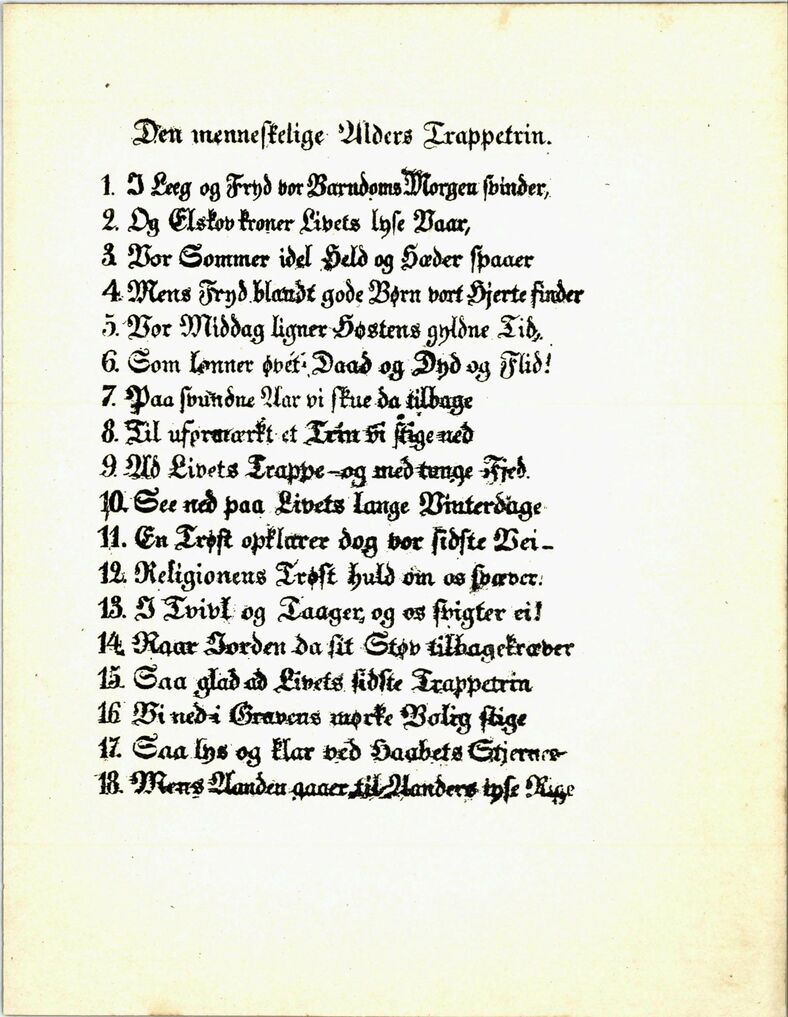 Den menneskelige Alders Trappetrin.
1. I Leeg og Fryd vor Barndoms Morgen svinder,
2. Og Elskov kroner Livets lyse Vaar,
3. Vor Sommer idel Held og Hæder spaaer
4. Mens Fryd blandt gode Børn vort Hjerte finder
5. Vor Middag ligner Høstens gyldne Tid,
6. Som lønner øvet Daad og Dyd og Flid!
7. Paa svundne Aar vi skue da tilbage
8. Til uformærkt et Trin vi stige ned
9. Ad Livets Trappe - og med tunge Fjed.
10. See ned paa Livets lange Vinterdage
11. En Trøst opklarer dog vor sidste Vei -
12. Religionens Trøst huld om os svæver.
13. I Tvivl og Taager, og os svigter ei!
14. Naar Jorden da sit Støv tilbagekræver
15. Saa glad ad Livets sidste Trappetrin
16. Vi ned i Gravens mørke Bolig stige
17. Saa lys og klar ved Haabets Stjernes
18. Mens Aanden gaaer til Aanders lyse Rige